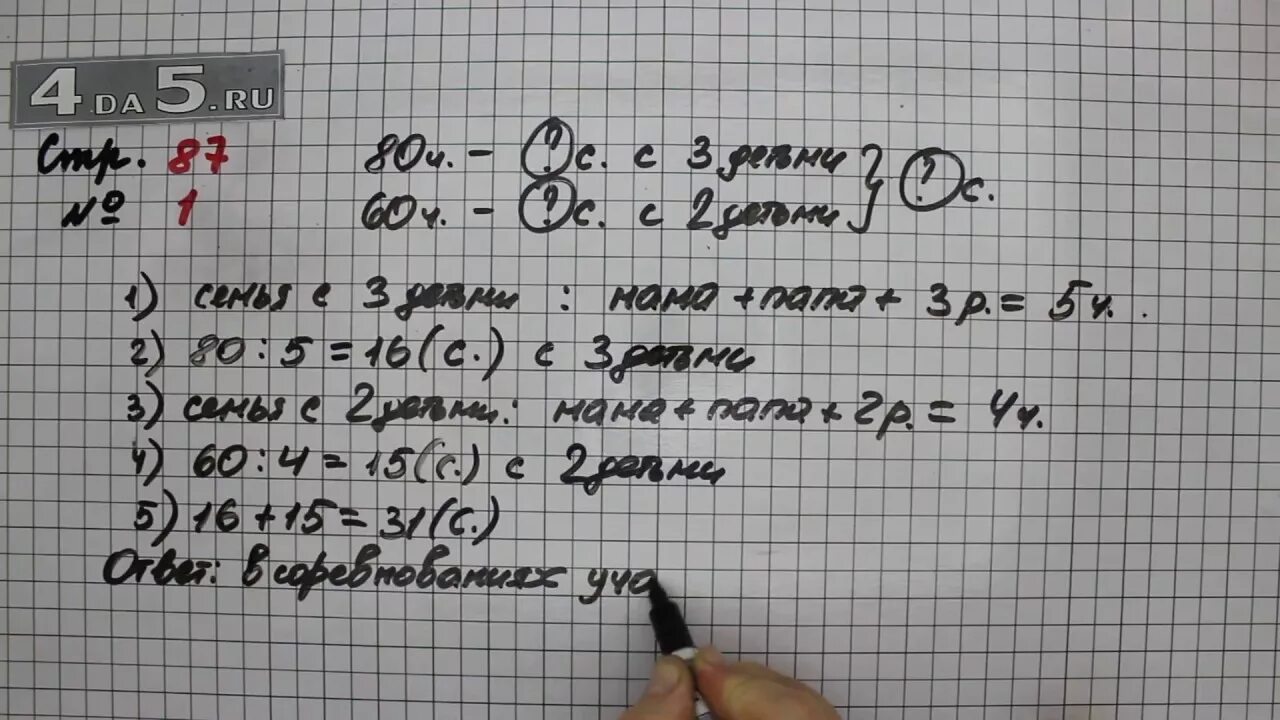 4 DA 5.RU
Стр. 87
№ 1
80ч. - ? с. с 3 детьми
60ч. - ? с. с 2 детьми } ? с.
1) семья с 3 детьми : мама + папа + 3 р. = 5 ч.
2) 80 : 5 = 16 (с.) с 3 детьми
3) семья с 2 детьми : мама + папа + 2 р. = 4 ч.
4) 60 : 4 = 15 (с.) с 2 детьми
5) 16 + 15 = 31 (с.)
Ответ: в соревнованиях уча